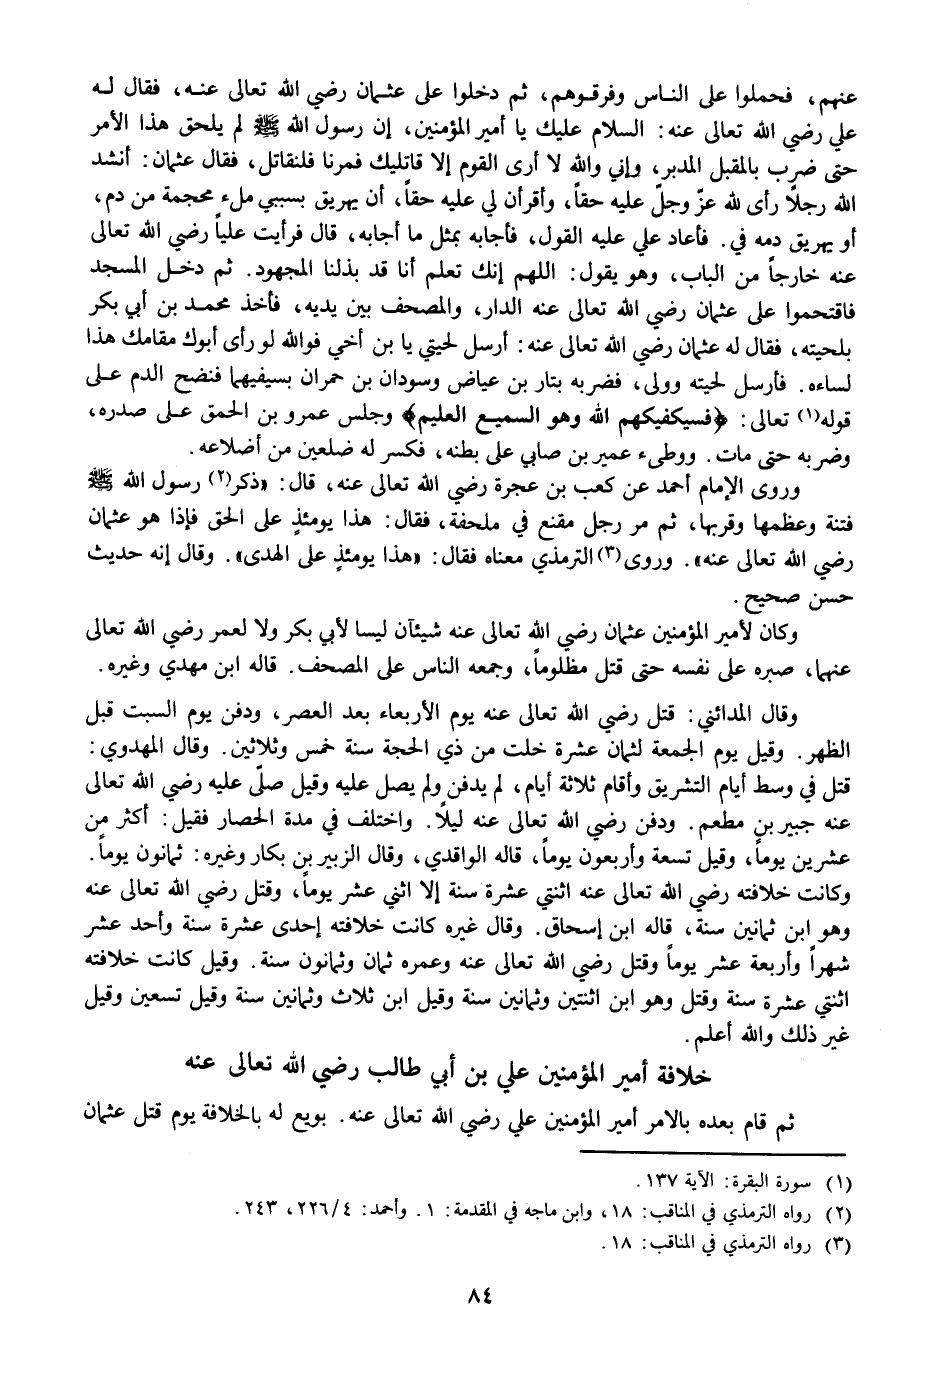 عنهم، فحملوا على الناس وفرقوهم، ثم دخلوا على عثمان رضي الله تعالى عنه، فقال له
علي رضي الله تعالى عنه: السلام عليك يا أمير المؤمنين، إن رسول الله ﷺ لم يلحق هذا الأمر
حتى ضرب بالمقبل المدبر، وإني والله لا أرى القوم إلا قاتليك فمرنا فلنقاتل، فقال عثمان: أنشد
الله رجلًا رأى لله عزّ وجلّ عليه حقاً، وأقرأن لي عليه حقاً، أن يهريق بسببي ملء محجمة من دم،
أو يهريق دمه في. فأعاد علي عليه القول، فأجابه بمثل ما أجابه، قال فرأيت علياً رضي الله تعالى
عنه خارجاً من الباب، وهو يقول: اللهم إنك تعلم أنا قد بذلنا المجهود. ثم دخل المسجد
فاقتحموا على عثمان رضي الله تعالى عنه الدار، والمصحف بين يديه، فأخذ محمد بن أبي بكر
بلحيته، فقال له عثمان رضي الله تعالى عنه: أرسل لحيتي يا بن أخي فوالله لو رأى أبوك مقامك هذا
لساءه. فأرسل لحيته وولى، فضربه بتار بن عياض وسودان بن حمران بسيفيهما فنضح الدم على
قوله(١) تعالى: ﴿فسيكفيكهم الله وهو السميع العليم﴾ وجلس عمرو بن الحمق على صدره،
وضربه حتى مات. ووطىء عمير بن صابي على بطنه، فكسر له ضلعين من أضلاعه.
وروى الإمام أحمد عن كعب بن عجرة رضي الله تعالى عنه، قال: «ذكر(٢) رسول الله ﷺ
فتنة وعظمها وقربها، ثم مر رجل مقنع في ملحفة، فقال: هذا يومئذٍ على الحق فإذا هو عثمان
رضي الله تعالى عنه». وروى(٣) الترمذي معناه فقال: «هذا يومئذٍ على الهدى». وقال إنه حديث
حسن صحيح.
وكان لأمير المؤمنين عثمان رضي الله تعالى عنه شيئآن ليسا لأبي بكر ولا لعمر رضي الله تعالى
عنهما، صبره على نفسه حتى قتل مظلوماً، وجمعه الناس على المصحف. قاله ابن مهدي وغيره.
وقال المدائني: قتل رضي الله تعالى عنه يوم الأربعاء بعد العصر، ودفن يوم السبت قبل
الظهر. وقيل يوم الجمعة لثمان عشرة خلت من ذي الحجة سنة خمس وثلاثين. وقال المهدوي:
قتل في وسط أيام التشريق وأقام ثلاثة أيام، لم يدفن ولم يصل عليه وقيل صلّى عليه رضي الله تعالى
عنه جبير بن مطعم. ودفن رضي الله تعالى عنه ليلًا. واختلف في مدة الحصار فقيل: أكثر من
عشرين يوماً، وقيل تسعة وأربعون يوماً، قاله الواقدي، وقال الزبير بن بكار وغيره: ثمانون يوماً.
وكانت خلافته رضي الله تعالى عنه اثنتي عشرة سنة إلا اثني عشر يوماً، وقتل رضي الله تعالى عنه
وهو ابن ثمانين سنة، قاله ابن إسحاق. وقال غيره كانت خلافته إحدى عشرة سنة وأحد عشر
شهراً وأربعة عشر يوماً وقتل رضي الله تعالى عنه وعمره ثمان وثمانون سنة. وقيل كانت خلافته
اثنتي عشرة سنة وقتل وهو ابن اثنتين وثمانين سنة وقيل ابن ثلاث وثمانين سنة وقيل تسعين وقيل
غير ذلك والله أعلم.
خلافة أمير المؤمنين علي بن أبي طالب رضي الله تعالى عنه
ثم قام بعده بالامر أمير المؤمنين علي رضي الله تعالى عنه. بويع له بالخلافة يوم قتل عثمان
(١) سورة البقرة: الآية ١٣٧.
(٢) رواه الترمذي في المناقب: ١٨، وابن ماجه في المقدمة: ١. وأحمد: ٢٢٦/٤، ٢٤٣.
(٣) رواه الترمذي في المناقب: ١٨.
٨٤